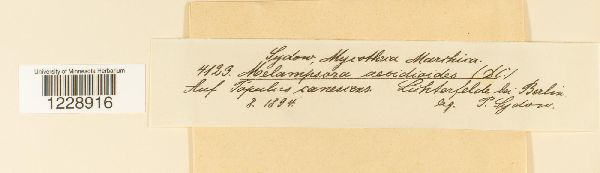 University of Minnesota Herbarium
1228916
Sydow, Mycotheca Marchica.
4123. Melampsora aecidioides (DC)
Auf Populus canescens Lichterfelde bei Berlin
8. 1894. leg. P. Sydow.